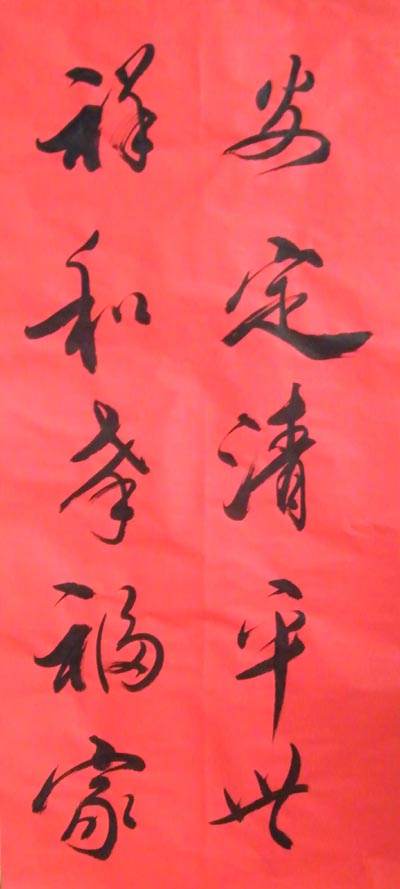 安定清平世
祥和孝福家